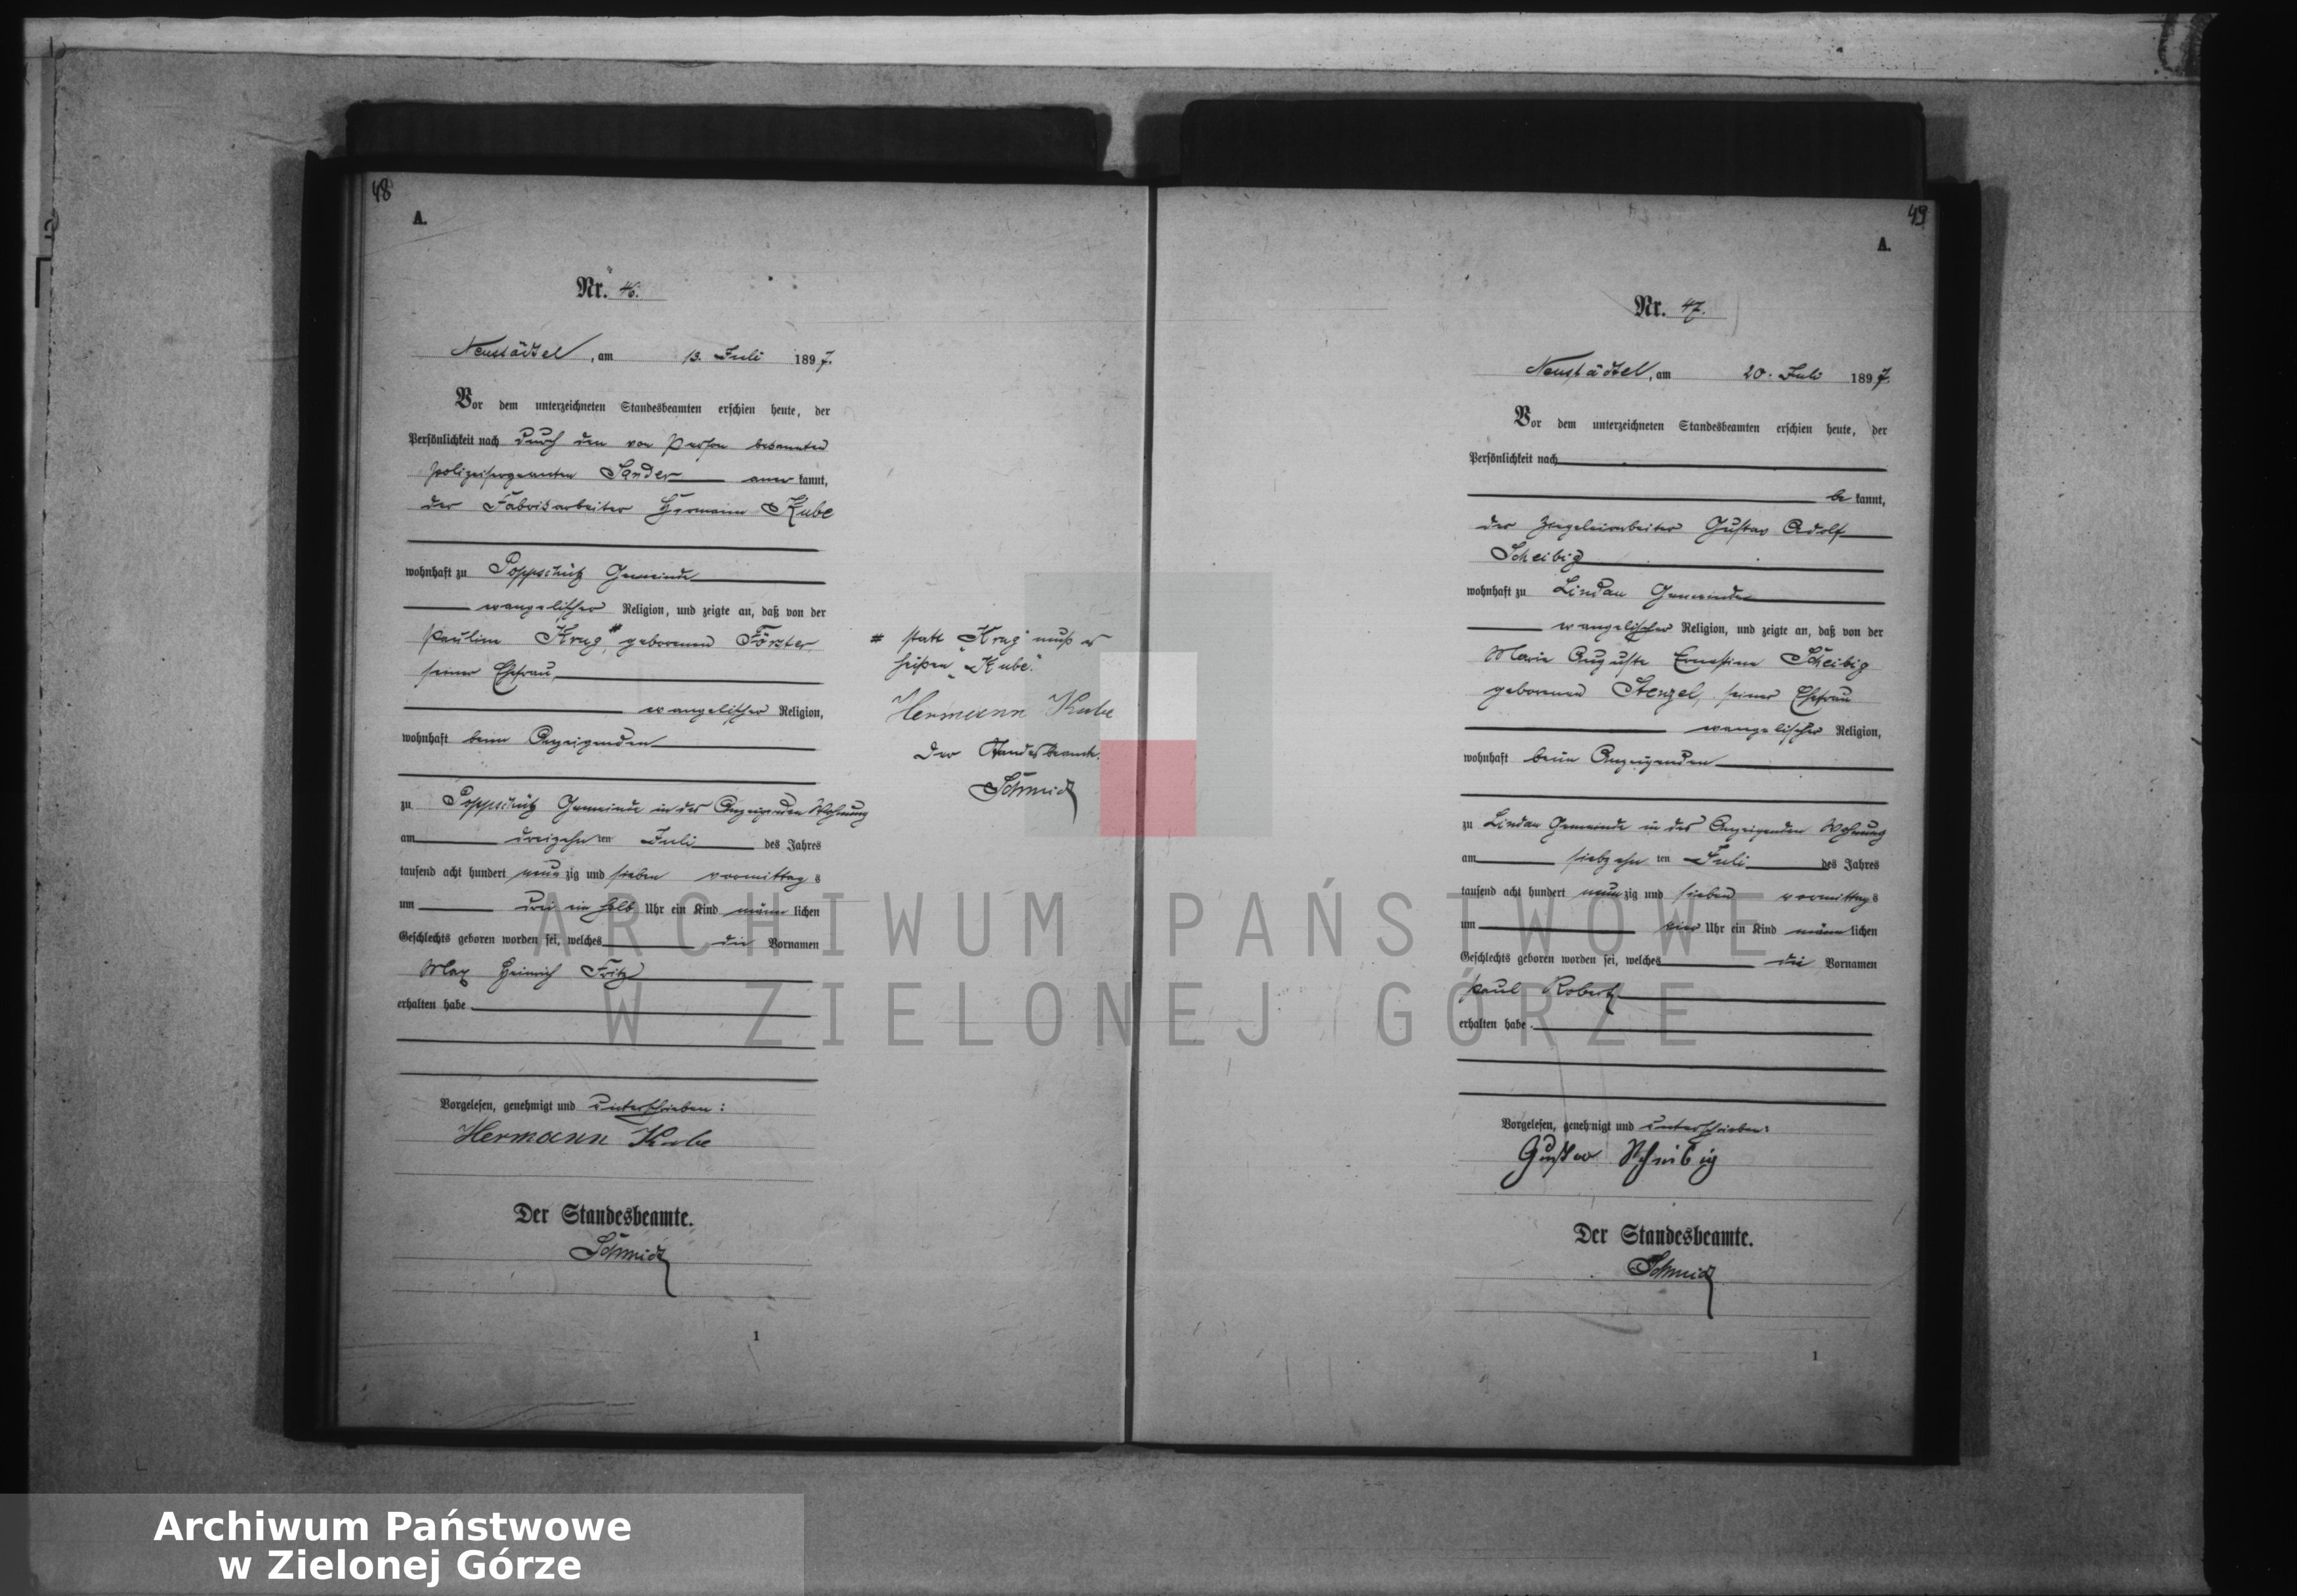 48
A.
Nr. 46.
Neustädtel, am 13. Juli 1897.
Vor dem unterzeichneten Standesbeamten erschien heute, der
Persönlichkeit nach durch den von Person bekannten
Polizeisergeanten Sander anerkannt,
der Fabrikarbeiter Hermann Kube
wohnhaft zu Poppschütz Gemeinde
evangelischer Religion, und zeigte an, daß von der
Pauline Krug # geborenen Förster
seiner Ehefrau,
evangelischer Religion,
wohnhaft beim Anzeigenden
zu Poppschütz Gemeinde in des Anzeigenden Wohnung
am dreizehnten Juli des Jahres
tausend acht hundert neunzig und sieben vormittags
um drei ein halb Uhr ein Kind männlichen
Geschlechts geboren worden sei, welches die Vornamen
Max Heinrich Fritz
erhalten habe
Vorgelesen, genehmigt und unterschrieben:
Hermann Kube
Der Standesbeamte.
Schmidt
1
# statt "Krug" muß es
heißen "Kube".
Hermann Kube
Der Standesbeamte.
Schmidt
49
A.
Nr. 47.
Neustädtel, am 20. Juli 1897.
Vor dem unterzeichneten Standesbeamten erschien heute, der
Persönlichkeit nach
bekannt,
der Ziegeleiarbeiter Gustav Adolf
Scheibig
wohnhaft zu Lindau Gemeinde
evangelischer Religion, und zeigte an, daß von der
Marie Auguste Ernestine Scheibig
geborenen Stenzel, seiner Ehefrau
evangelischer Religion,
wohnhaft beim Anzeigenden
zu Lindau Gemeinde in des Anzeigenden Wohnung
am siebzehnten Juli des Jahres
tausend acht hundert neunzig und sieben vormittags
um vier Uhr ein Kind männlichen
Geschlechts geboren worden sei, welches die Vornamen
Paul Robert
erhalten habe.
Vorgelesen, genehmigt und unterschrieben:
Gustav Scheibig
Der Standesbeamte.
Schmidt
1
ARCHIWUM PAŃSTWOWE
W ZIELONEJ GÓRZE
Archiwum Państwowe
w Zielonej Górze